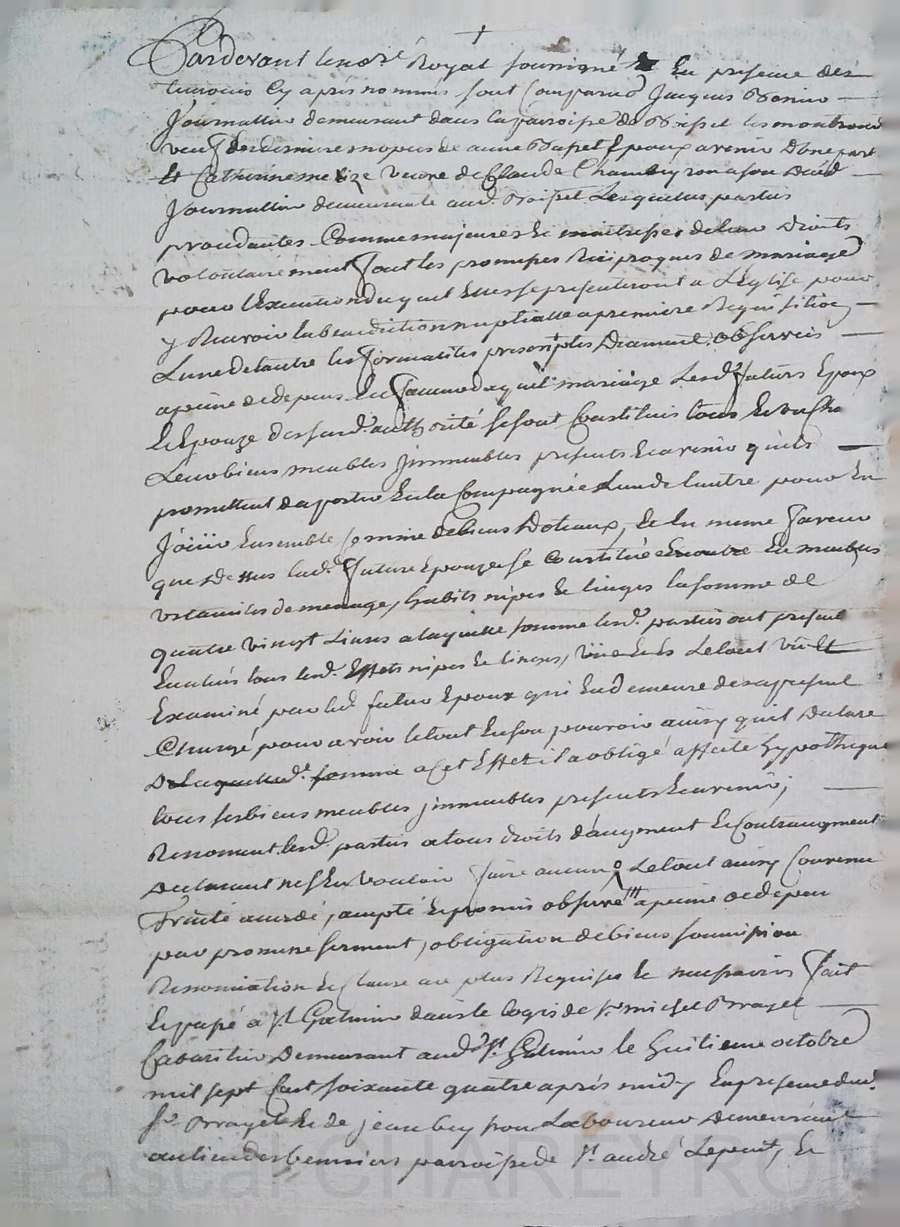 Pardevant le no.re Royal soussigné & En presence des
temoins Cy après nommés sont Comparus Jacques
Journallier demeurant dans la parroisse de les
veuf En dernieres nopces de anne Epoux avenir D'une part
Et Catherine veuve de Claude Chambeyron a son
Journalliere demeurante aud. Lesquelles parties
procédantes Comme majeures et maitresses de leur Droits
volontairement font les promesses Réciproques de mariage
pour L'Execution duquel Elles se presenteront a L'Eglise pour
y Recevoir la benediction nuptialle a premiere Requisition
L'une de L'autre les formalités prescriptes Duement observées
a peine de depens En faveur duquel mariage Lesd. futurs Epoux
Et Epouze de leursd. authorité se sont Constitués tous Et
Leurs biens meubles Jmmeubles presents Et avenir qu'ils
promettent d'aporter En la Compagnée L'un de L'autre pour En
Joüir Ensemble Comme de biens Dotaux, Et En meme faveur
que Dessus lad. future Epouze se Constitue En outre En meubles
ustancilles de menage, habits nipes Et linges la somme de
quatre vingt Livres a laquelle somme lesd. parties ont presentement
Evalués tous lesd. Effets nipes Et linges, Le tout vü Et
Examiné par led. futur Epoux qui En demeure des a present
Chargé pour avoir le tout En son pouvoir ainsy qu'il Declare
De laquelle d.e somme a Cet Effet il a obligé affecté hypothequé
tous ses biens meubles jmmeubles presents Et avenir;
Renoncent lesd. parties a tous droits d'augment Et Contraugment
Declarant n'En vouloir faire aucun, Le tout ainsy Convenu
Traité accordé, accepté Et promis observer a peine de depens
par promesse serment, obligation de biens soumission
Renonciation Et Clause au plus Requises Et necessaires fait
Et passé a St Galmier dans le logis de Sr michel Brayet
Cabaretier Demeurant aud. St Galmier le huitieme octobre
mil sept Cent soixante quatre après midy En presence dud.
Sr. Brayet Et de jean Laboureur Demeurant
au lieu des parroisse de St. andré Lepuit, Et
Pascal CHAREYRON